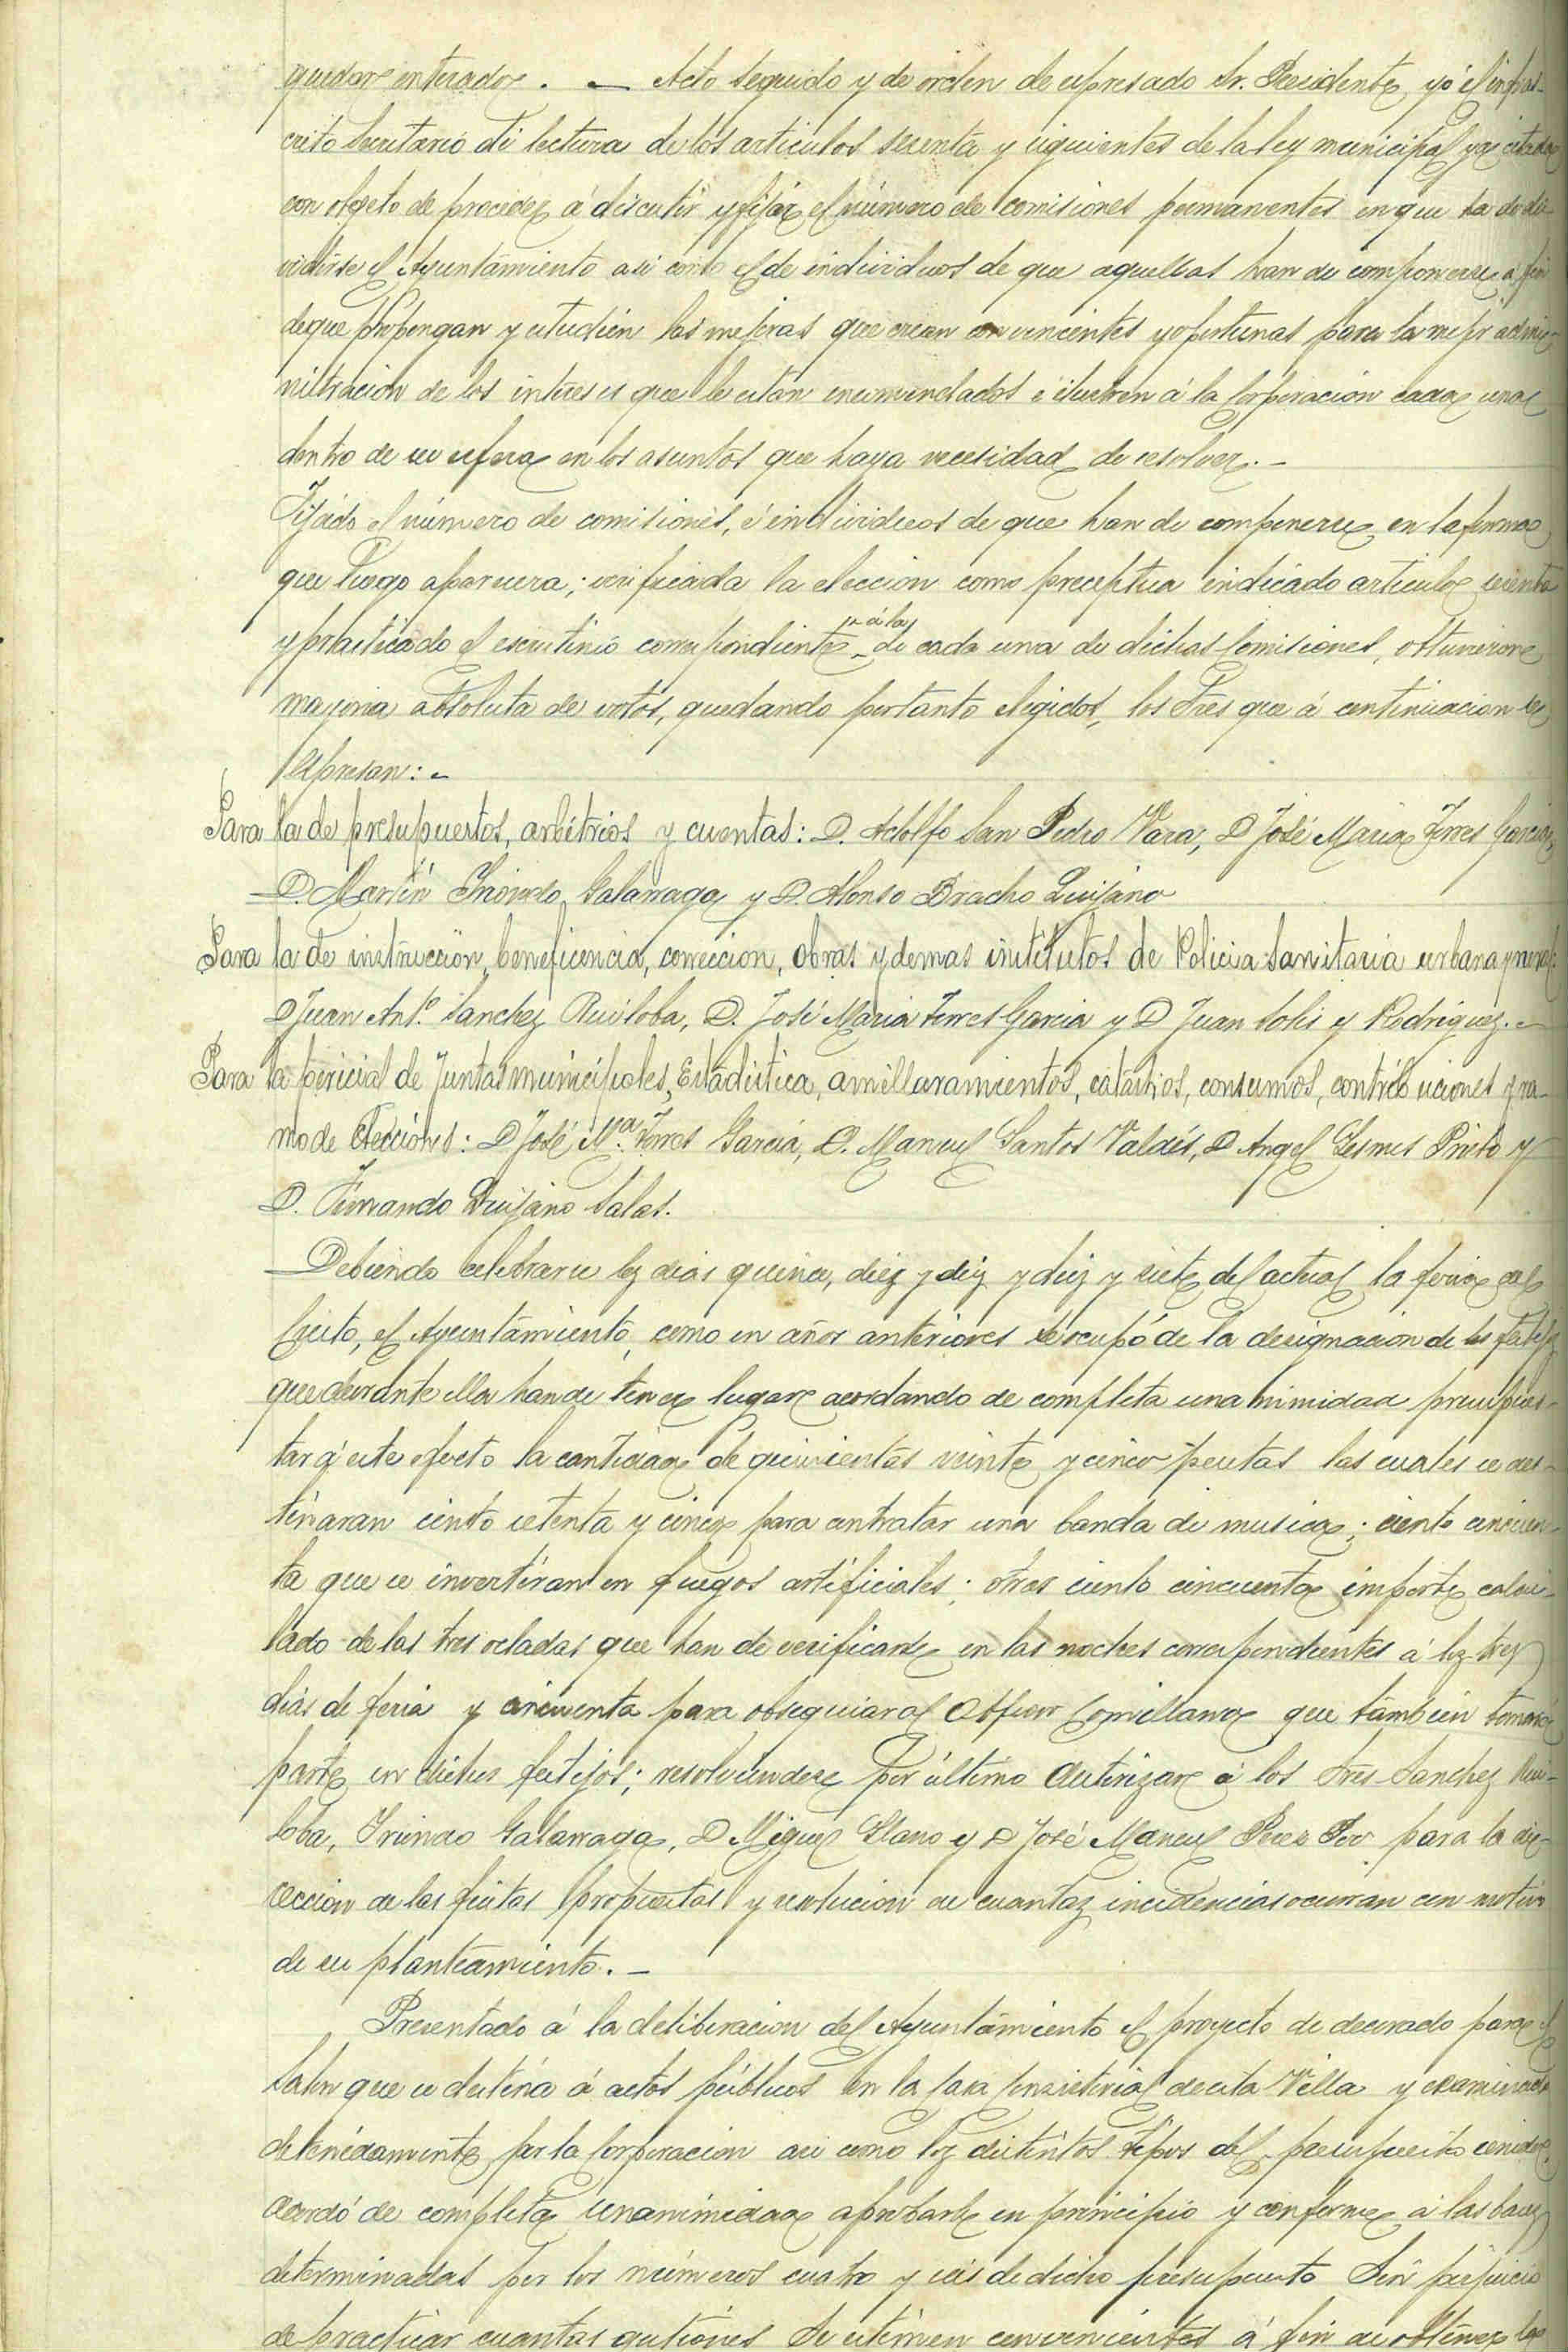 quedar enterados. — Acto seguido y de orden de espresado Sr. Presidente, yó el infras-
crito Secretario di lectura de los articulos sesenta y siguientes de la ley municipal ya citada
con objeto de proceder á discutir y fijar el número de comisiones permanentes en que ha de di-
vidirse el Ayuntamiento asi como el de individuos de que aquellas han de componerse á fin
de que propongan y estudien las mejoras que crean convenientes y oportunas para la mejor admi-
nistracion de los intereses que le están encomendados é ilustren á la Corporacion cada una
dentro de su esfera en los asuntos que haya necesidad de resolver. —
Fijado el número de comisiones, é individuos de que han de componerse en la forma
que luego aparecera; verificada la eleccion como preceptua indicado articulo sesenta
y practicado el escrutinio correspondiente á la de cada una de dichas Comisiones, obtuvieron
mayoria absoluta de votos, quedando por tanto elegidos, los Sres que á continuacion se
espresan: —
Para la de presupuestos, arbitrios y cuentas: D. Adolfo San Pedro Vara, D José Maria Torres Garcia,
D. Martin Galarraga y D. Alonso Bracho Quijano
Para la de instrucción, beneficencia, correccion, obras y demas institutos de Policia Sanitaria urbana y rural:
D Juan Ant.º Sanchez Ruiloba, D. José Maria Torres Garcia y D Juan Solis y Rodriguez. —
Para la pericial de Juntas municipales, Estadistica, amillaramientos, catastros, consumos, contribuciones y ra-
mo de Elecciones: D José M.ª Torres Garcia, D. Manuel Santos Valdés, D. Angel Lesmes Prieto y
D. Fernando Quijano Salas.
Debiendo celebrarse los dias quince, diez y seis y diez y siete del actual la feria del
Cristo, el Ayuntamiento, como en años anteriores se ocupó de la designacion de los festejos
que durante ella han de tener lugar acordando de completa unanimidad presupues-
tar á este efecto la cantidad de quinientas veinte y cinco pesetas las cuales se des-
tinaran ciento setenta y cinco para contratar una banda de musica; ciento cincuen-
ta que se invertiran en fuegos artificiales; otras ciento cincuenta importe calcu-
lado de las tres veladas que han de verificarse en las noches correspondientes á los tres
dias de feria y cincuenta para obsequiar al Orfeon Comillano que también tomará
parte en dichos festejos; resolviendose por último autorizar á los Sres Sanchez Rui-
loba, Galarraga, D Miguel Llano y D José Manuel Perez para la di-
reccion de las fiestas propuestas y resolucion de cuantas incidencias ocurran con motivo
de su planteamiento. —
Presentado á la deliberacion del Ayuntamiento el proyecto de decorado para el
Salon que se destina á actos públicos en la Casa Consistorial de esta Villa y examinado
detenidamente por la Corporacion asi como los distintos tipos del presupuesto
acordó de completa unanimidad aprobarle en principio y conforme á las bases
determinadas por los números cuatro y seis de dicho presupuesto sin perjuicio
de practicar cuantas gestiones se estimen convenientes á fin de obtener los